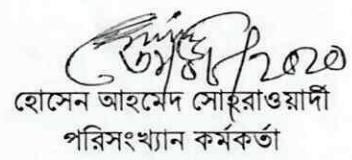 ২০২০
হোসেন আহমেদ সোহরাওয়ার্দী
পরিসংখ্যান কর্মকর্তা